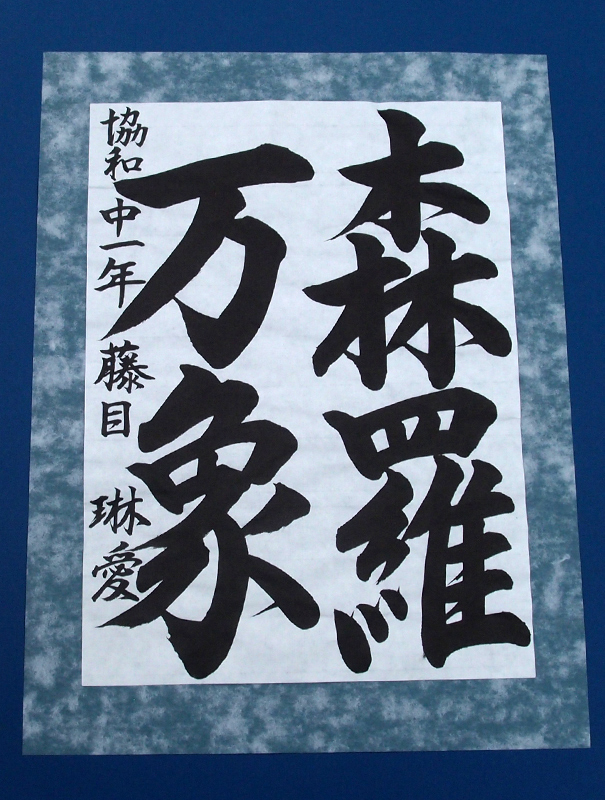 森羅
万象
協和中一年 藤目 琳愛